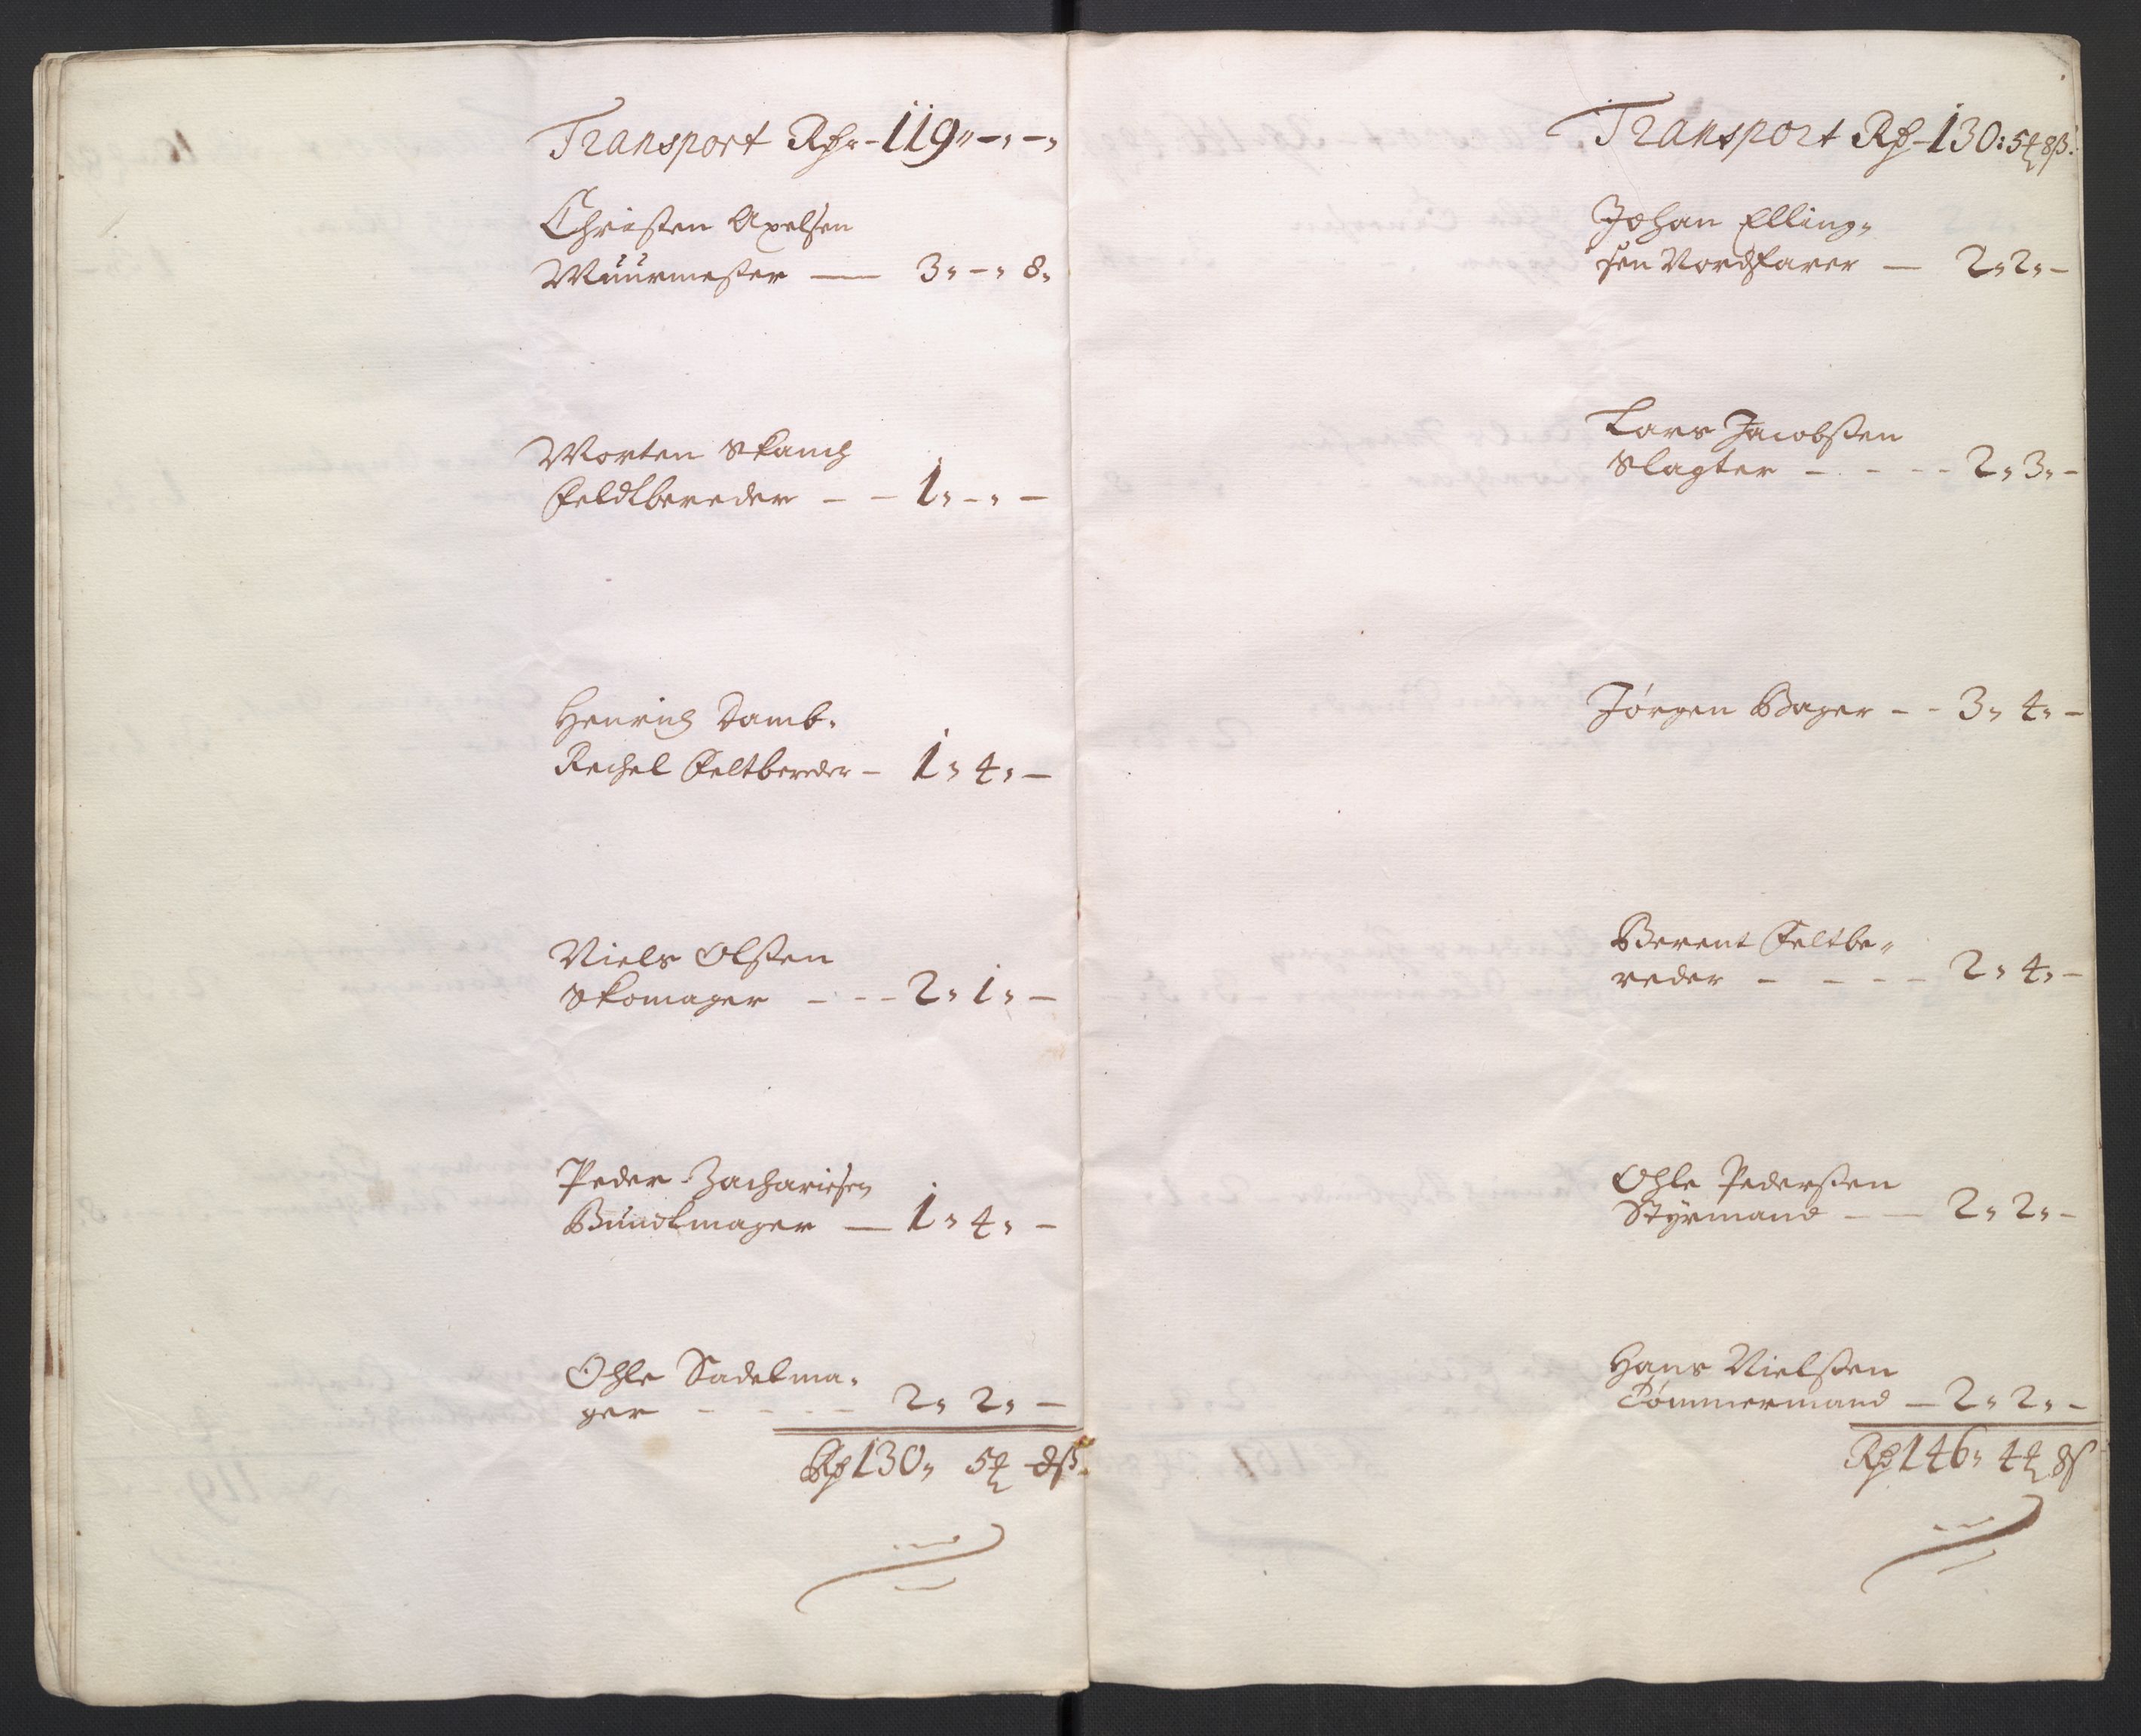 Transport Rdr - 119 „ - „ - „
Christen Axelsen
Muurmester — 3 „ - „ 8 „
Morten Skanch
Feldtbereder - - 1 „ - „ -
Henrich Damb-
Rechel Feltbereder - 1 „ 4 „ -
Niels Olsen
Skomager - - - 2 „ 1 „ -
Peder Zachariesen
Bundtmager — 1 „ 4 „ -
Ohle Sadelma-
ger - - - - 2 „ 2 „ -
Rd 130 „ 5 ꝑ 8 ß
Transport Rd - 130 : 5 ꝑ 8 ß
Johan Elling-
sen Nordfarer — 2 „ 2 „ -
Lars Jacobsen
Slagter - - - - 2 „ 3 „ -
Jørgen Bager - - 3 „ 4 „ -
Berent Feltbe-
reder - - - - 2 „ 4 „ -
Ohle Pedersen
Styrmand - — 2 „ 2 „ -
Hans Nielsen
Tømmermand — 2 „ 2 „ -
Rd 146 „ 4 ꝑ 8 ß